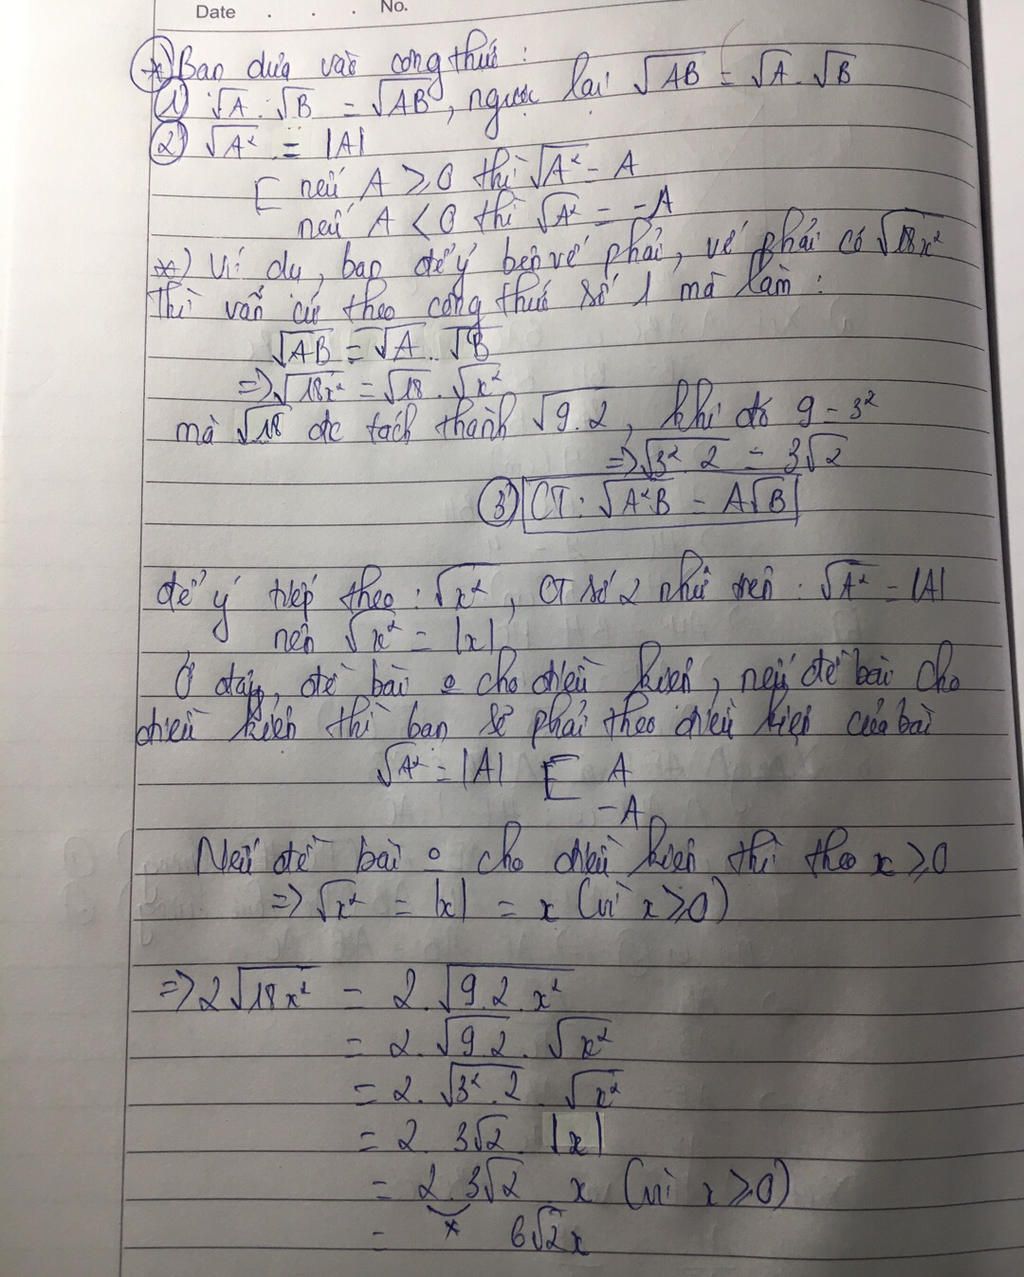 Date . . . No.
*) Bạn dựa vào công thức :
① √A . √B = √AB , ngược lại √AB = √A . √B
② √A² = |A|
[ nếu A ⩾ 0 thì √A² = A
nếu A < 0 thì √A² = -A
*) Ví dụ, bạn để ý bên vế phải, vế phải có √18x²
thì vẫn cứ theo công thức số 1 mà làm :
√AB = √A . √B
=> √18x² = √18 . √x²
mà √18 đc tách thành √9.2 , khi đó 9 = 3²
=> √3² 2 = 3√2
③ CT : √A²B = A√B
để ý tiếp theo : √x² , CT số 2 như trên : √A² = |A|
nên √x² = |x|
Ở đây, đề bài o cho điều kiện, nếu đề bài cho
điều kiện thì bạn sẽ phải theo điều kiện của bài
√A² = |A| [ A
-A
Nếu đề bài o cho điều kiện thì theo x ⩾ 0
=> √x² = |x| = x (vì x ⩾ 0)
=> 2√18x² = 2.√9.2.x²
= 2.√9.2 . √x²
= 2. √3².2 . √x²
= 2. 3√2 . |x|
= 2.3√2 . x (vì x ⩾ 0)
*
= 6√2x